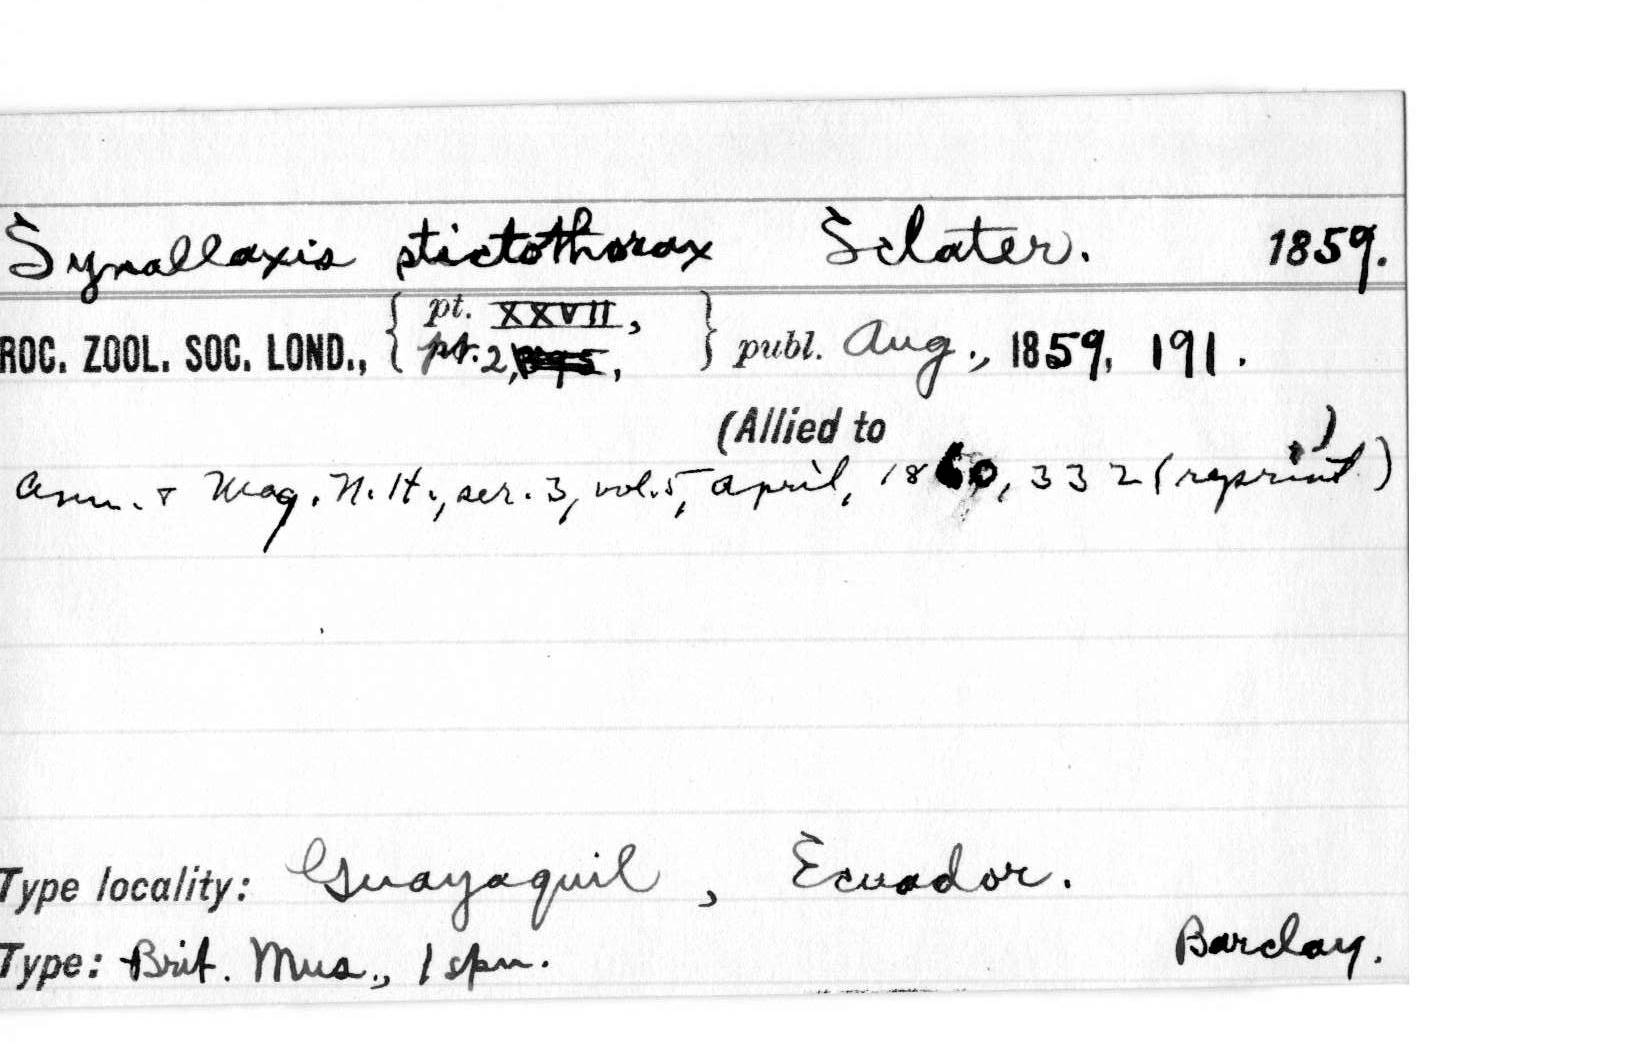 Synallaxis stictothorax Sclater. 1859.
ROC. ZOOL. SOC. LOND., { pt. XXVII, pt. 2, } publ. Aug., 1859, 191.
(Allied to )
Ann. & Mag. N. H., ser. 3, vol. 5, April, 1860, 332 (reprint)
Type locality: Guayaquil, Ecuador.
Type: Brit. Mus., 1 spn. Barclay.